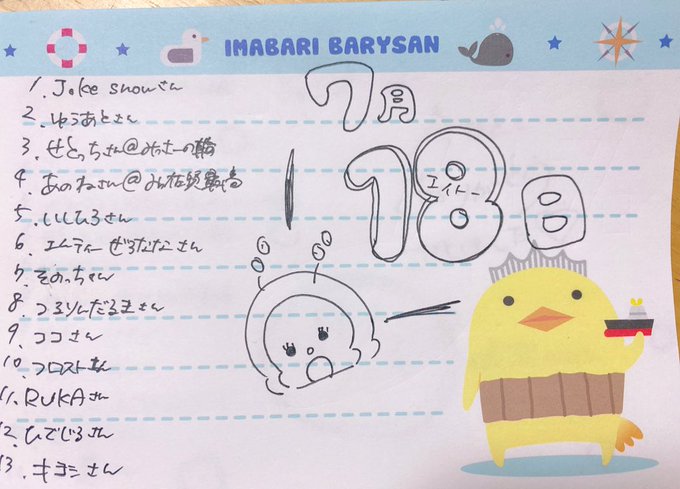 IMABARI BARYSAN
7月
18日
エイトー
1. Jake snowさん
2. ゆうあとさん
3. せとっちさん@みっきーの輪
4. あのねさん@みんな最高
5. いしひろさん
6. エムティーぜろななこさん
7. そのっちゃん
8. つるりんだるまさん
9. ココさん
10. フロストさん
11. RUKAさん
12. ひでじるさん
13. キヨシさん